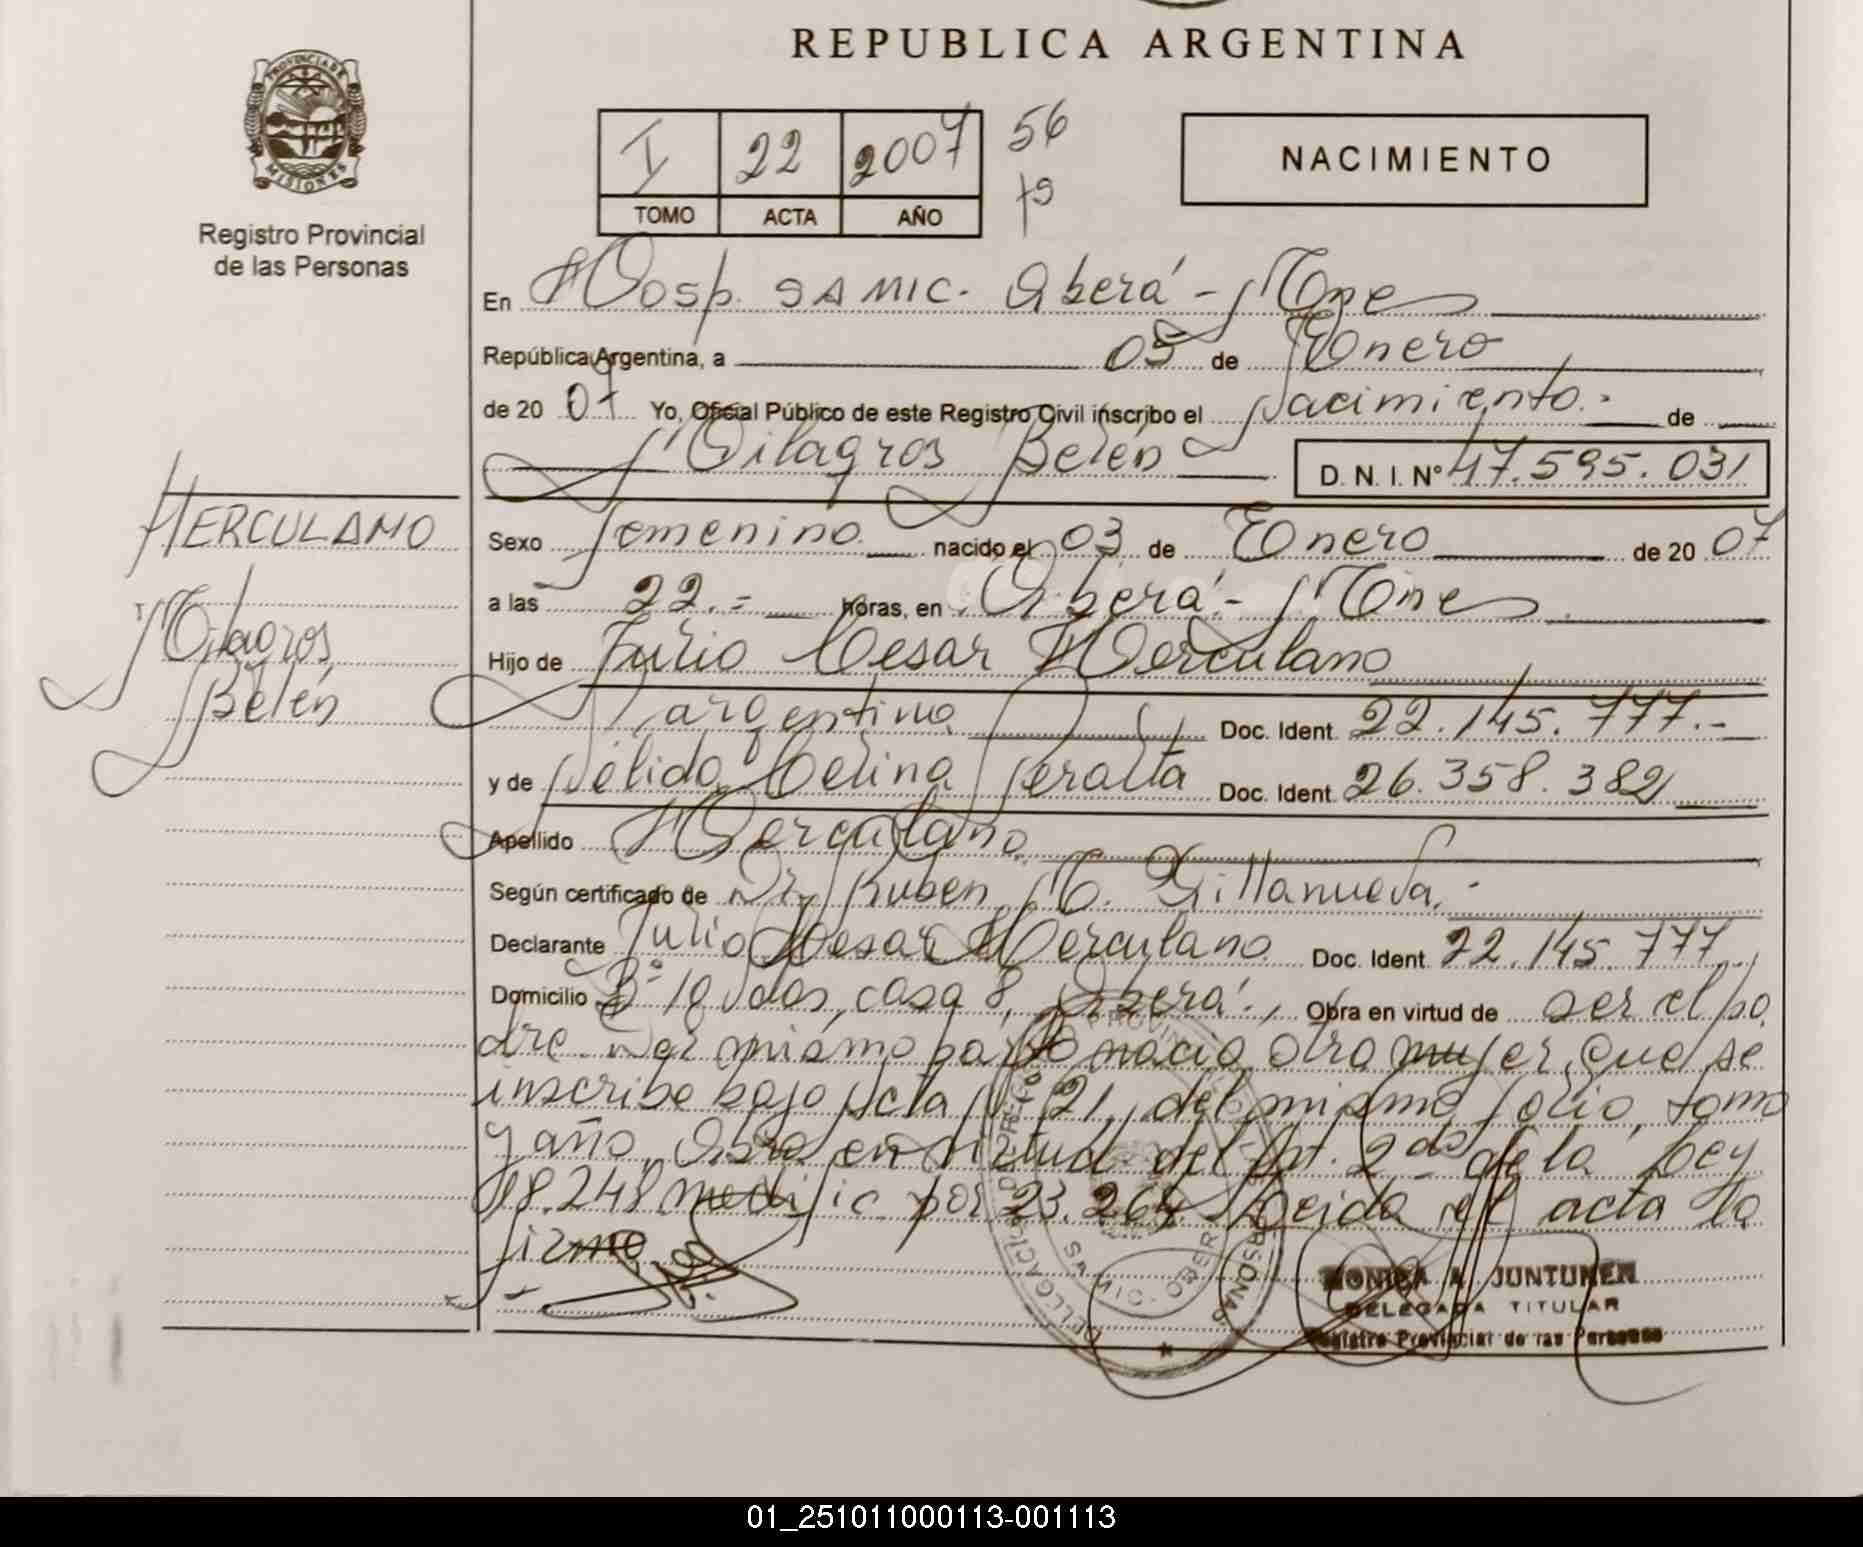 REPUBLICA ARGENTINA
PROVINCIA DE
MISIONES
Registro Provincial
de las Personas
I 22 2007 56
TOMO ACTA AÑO
NACIMIENTO
En Hosp. SAMIC. Oberá - Mnes
República Argentina, a 05 de Enero
de 20 07 Yo, Oficial Público de este Registro Civil inscribo el Nacimiento.- de
Milagros Belén D. N. I. Nº 47.595.031
HERCULANO
Milagros
Belén
Sexo femenino nacido el 03 de Enero de 20 07
a las 22.= horas, en Oberá - Mnes
Hijo de Julio Cesar Herculano
argentino Doc. Ident. 22.145.777.-
y de Nélida Celina Peralta Doc. Ident. 26.358.382
Apellido Herculano
Según certificado de Dr. Ruben M. Villanueva.-
Declarante Julio Cesar Herculano Doc. Ident. 22.145.777
Domicilio Bº 10 Vdas, casa 8, Oberá., Obra en virtud de ser el pa
dre. Del mismo parto nació otra mujer que se
inscribe bajo Acta Nº 21, del mismo folio, tomo
y año. Obra en virtud del Art. 2do de la Ley
18.248 modific por 23.264. Leida el acta la
firma
MONICA A. JUNTUNEN
DELEGADA TITULAR
Registro Provincial de las Personas
01_251011000113-001113